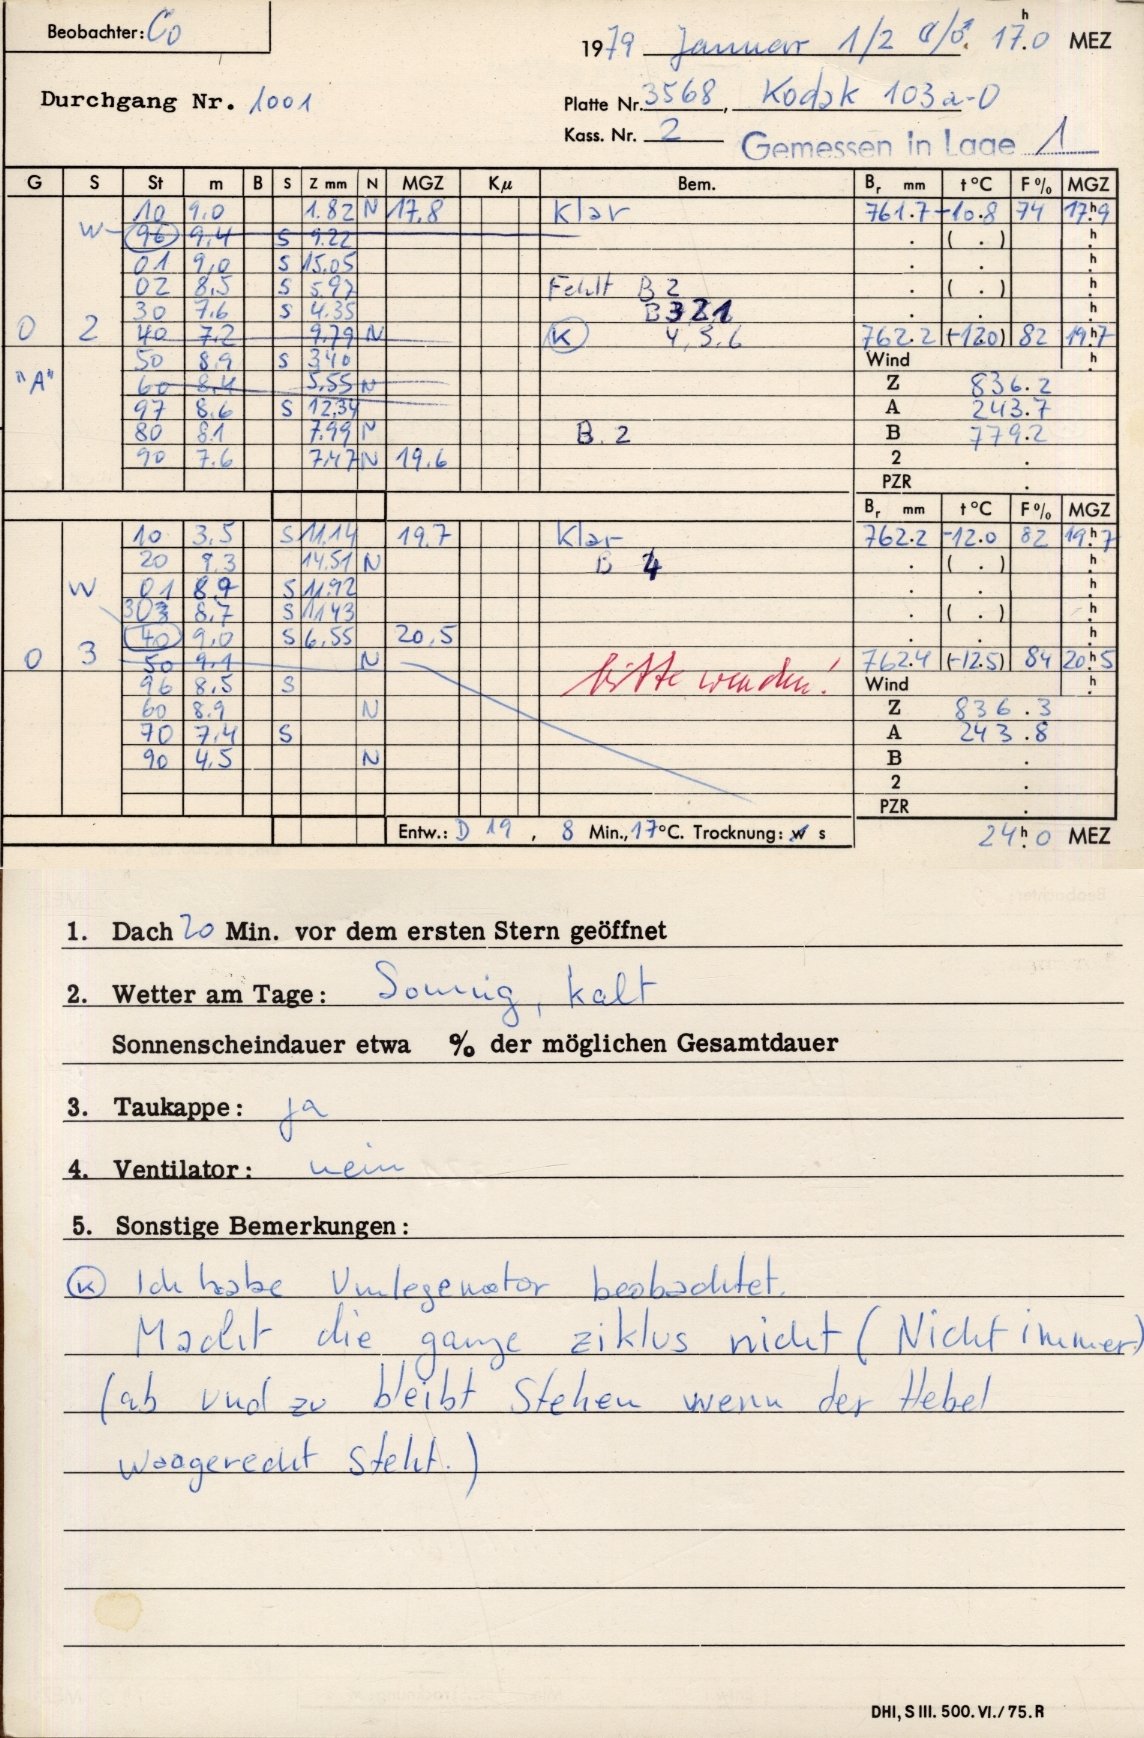 Beobachter: Co
1979 Januar 1/2 17.h0 MEZ
Durchgang Nr. 1001
Platte Nr. 3568, Kodak 103a-O
Kass. Nr. 2 Gemessen in Lage 1
G S St m B S Z mm N MGZ Kμ Bem. Br mm t°C F% MGZ
10 9.0 1.82 N 17.8 Klar 761.7 -10.8 74 17.h9
W 96 9.4 S 9.22 . ( . ) h
01 9.0 S 15.05 . . h
02 8.5 S 5.97 Fehlt B 2 . ( . ) h
30 7.6 S 4.35 B 321 . . h
0 2 40 7.2 9.79 N K 4,5.6 762.2 (-12.0) 82 19.h7
50 8.9 S 3.40 Wind h
"A" 60 8.4 5.55 N Z 836.2
97 8.6 S 12.34 A 243.7
80 8.1 7.99 N B. 2 B 779.2
90 7.6 7.47 N 19.6 2 .
PZR .
Br mm t°C F% MGZ
10 3.5 S 11.14 19.7 Klar 762.2 -12.0 82 19.h7
20 9.3 14.51 N B 4 . ( . ) h
W 01 8.9 S 11.92 . . h
303 8.7 S 11.43 . ( . ) h
40 9.0 S 6.55 20.5 . . h
0 3 50 9.1 N bitte wenden! 762.4 (-12.5) 84 20.h5
96 8.5 S Wind h
60 8.9 N Z 836.3
70 7.4 S A 243.8
90 4.5 N B .
2 .
PZR .
Entw.: D 19 , 8 Min., 17°C. Trocknung: w s 24.h0 MEZ
1. Dach 20 Min. vor dem ersten Stern geöffnet
2. Wetter am Tage: Sonnig, kalt
Sonnenscheindauer etwa % der möglichen Gesamtdauer
3. Taukappe: ja
4. Ventilator: nein
5. Sonstige Bemerkungen:
K Ich habe Umlegemotor beobachtet.
Macht die ganze ziklus nicht (Nicht immer)
(ab und zu bleibt stehen wenn der Hebel
waagerecht steht.)
DHI, S III. 500. VI./75. R